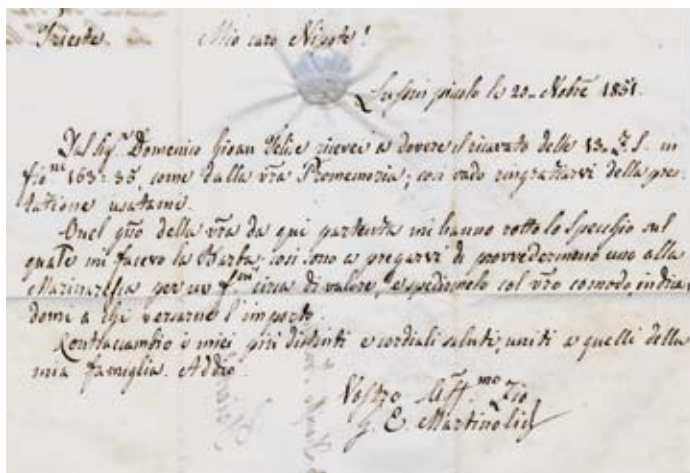 Trieste. Mio caro Nipote!
Lussin piccolo li 20. Nobre 1851.
Dal Sigr. Domenico Giovan Felice ricevei a dovere il ricavato delle 13. F. S. in
fioni 163:35, come dalla vra Promemoria; così vado ringratiarvi della pres-
tatione usatami.
Quel gno della vra da qui partenta mi hanno rotto lo specchio sul
quale mi facevo la Barba, così sono a pregarvi di provvedermene uno alla
Marinaresca per un fno circa di valore, e spedirmelo col vro comodo, indican-
domi a chi versarne l'importo.
Contraccambio i miei più distinti e cordiali saluti, uniti a quelli della
mia famiglia. Addio.
Vostro Affmo Zio
G. E. Martinolich